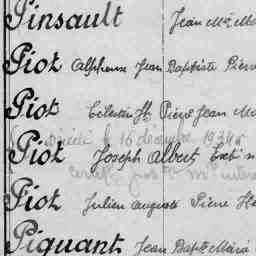 Pinsault Jean Mie Ma
Piot Alphonse Jean Baptiste Pierre
Piot Célestin Pierre Jean Ma
Décédé 16 décembre 1934
Piot Joseph Albert
Piot Julien Auguste Pierre He
Piquant Jean Bapte Marie